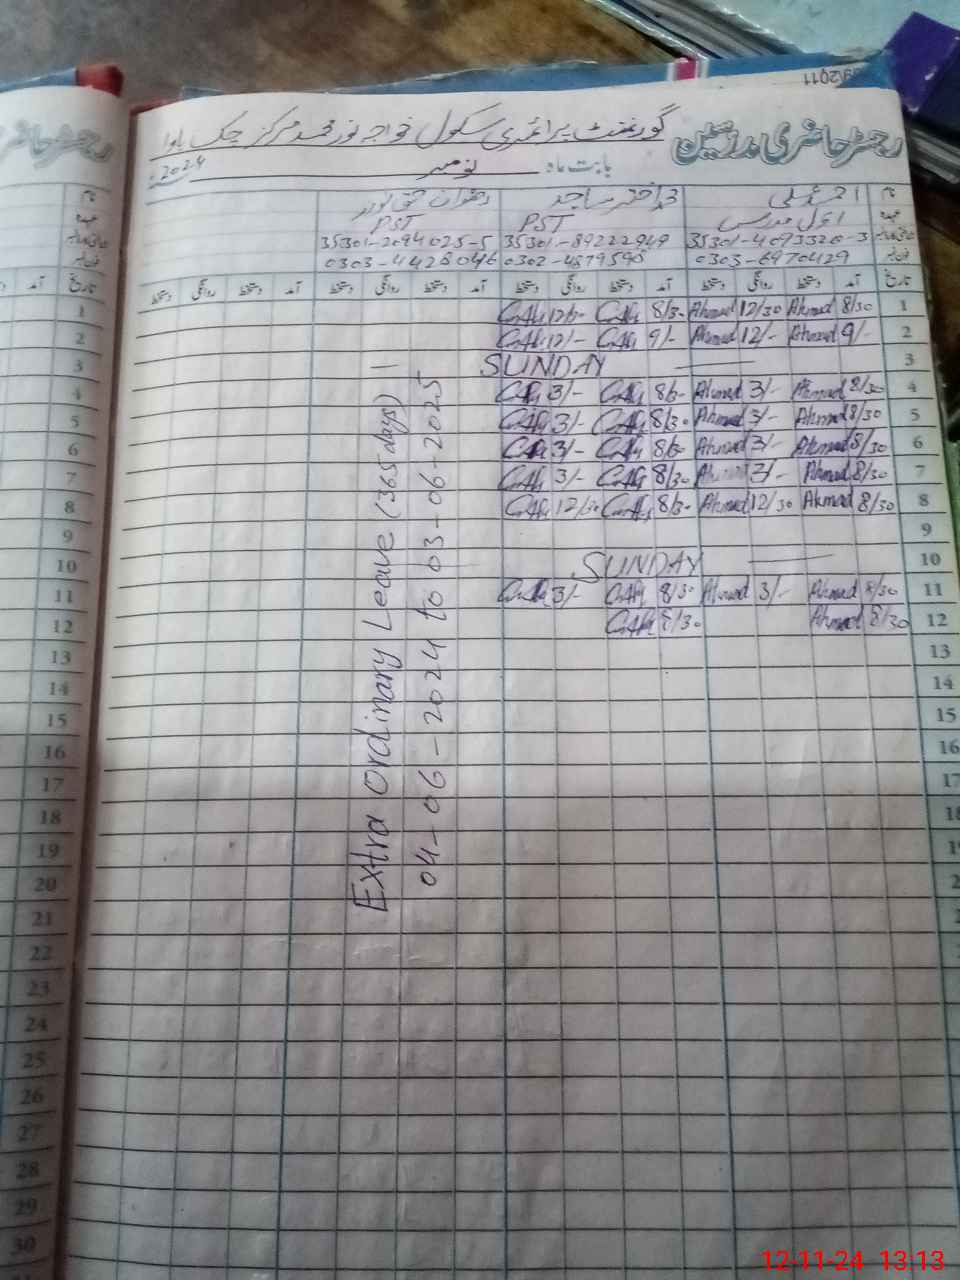 رجسٹر حاضری مدرسین
گورنمنٹ پرائمری سکول خواجہ نور محمد مرکز چک باوا
بابت ماہ نومبر 2024
نام احمد علی اختر ساجد رضوان
عہدہ اول مدرس PST PST
35301-4093320-3 35301-89222949 35301-2094025-5
0303-6970429 0302-4879590 0303-4428046
تاریخ آمد دستخط روانگی دستخط آمد دستخط روانگی دستخط آمد دستخط روانگی دستخط آمد دستخط روانگی دستخط
1 8/30 Ahmad 12/30 Ahmad 8/30
2 9/- Ahmad 12/- Ahmad 9/- 12/-
3 SUNDAY
4 8/30 Ahmad 3/- Ahmad 3/-
5 8/30 Ahmad 3/- Ahmad 8/30 3/-
6 8/30 Ahmad 3/- Ahmad 3/-
7 8/30 Ahmad 3/- Ahmad 8/30 3/-
8 8/30 Ahmad 12/30 Ahmad 12/30
9
10 SUNDAY
11 8/30 Ahmad 3/- Ahmad 8/30 3/-
12 8/30 Ahmad 8/30
13
14
15
16
17
18
19
20
21
22
23
24
25
26
27
28
29
30
Extra Ordinary Leave (365 days)
04-06-2024 to 03-06-2025
12-11-24 13:13